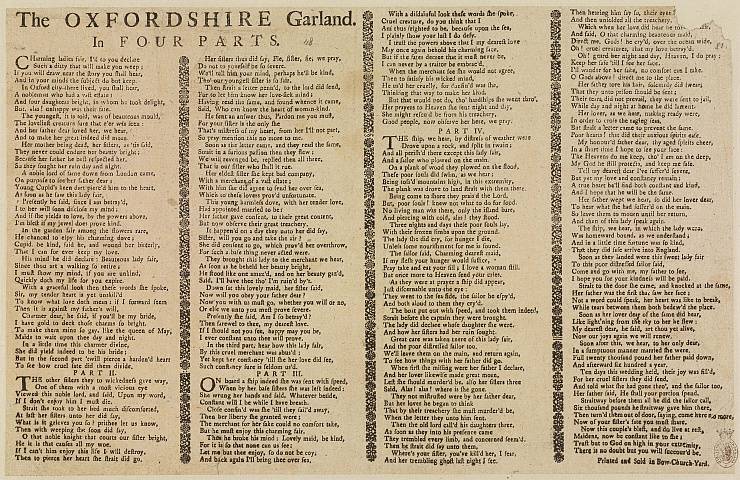 The OXFORDSHIRE Garland.
In FOUR PARTS.
Charming ladies fair, I'll to you declare
Such a ditty that will make you weep;
If you will draw near the story you shall hear,
And in your minds the subject do but keep.
In Oxford city there liv'd, you shall hear,
A nobleman who had a vast estate;
And four daughters bright, in whom he took delight,
But, alas! unhappy was their fate.
The youngest, it is said, was of beauteous mould,
The loveliest creature that e'er was seen:
And her father did lov'd her, we hear,
And to make her great indeed did mean.
Her mother being dead, her sisters, as 'tis said,
They never could endure her beauty bright;
Because her father he best respected her,
So they sought her ruin day and night.
A noble lord of fame down from London came,
On purpose to see her father dear:
Young Cupid's keen dart pierc'd him to the heart,
As soon as he saw this lady fair,
Presently he said, since I am betray'd,
I to her will soon disclose my mind;
And if she yields to love, by the powers above,
I'm blest if my jewel does prove kind.
In the garden fair among the flowers rare,
He chanced to espy his charming dove;
Cupid, be kind, said he, and wound her kindly,
That I can for ever enjoy my love.
His mind he did declare: Beauteous lady fair,
Since thou art a walking so retire;
I must show my mind, if you are unkind,
Quickly doth my life for you expire.
With a graceful look then these words she spoke,
Sir, my tender heart is yet unskill'd
To know what love doth mean: if I forward seem
Then it is against my father's will.
Charmer dear, he said, if you'll be my bride,
I have gold to deck those charms so bright.
To make them mine so gay, like the queen of May,
Maids to wait upon thee day and night.
In a little time this charmer divine,
She did yield indeed to be his bride;
But in the second part 'twill pierce a harden'd heart
To see how cruel fate did them divide.
PART II.
THIS other sisters they to wickedness gave way,
One of them with a most vicious eye
Viewed this noble lord, and said, Upon my word,
If I don't enjoy him I must die.
Strait she took to her bed much discomforted,
At last her sisters unto her did say,
What is it grieves you so? prithee let us know,
Then with weeping she soon did say,
O that noble knight that courts our sister bright,
He it is that causes all my woe.
If I can't him enjoy this life I will destroy,
Then to pierce her heart she strait did go.
Her sisters thus did say, Fie, sister, fie, we pray,
Do not to yourself be so severe.
We'll tell him your mind, perhaps he'll be kind,
Tho' our youngest sister is so fair.
Then strait a letter penn'd, to the lord did send,
For to let him know her love-sick mind;
Having read the same, and found whence it came,
Said, Who can know the heart of woman-kind.
He sent as answer thus, Pardon me you must,
For your sister is she only she
That's mistress of my heart, from her I'll not part,
So pray mention this no more to me.
Soon as the letter came, and they read the same,
Strait in a furious passion then they flew:
We will revenged be, replied them all three,
That is our sister who shall it rue.
Her eldest sister she kept bad company,
With a merchant of a vast estate;
With him she did agree to send her over sea,
Which to these lovers prov'd unfortunate.
This young harmless dove, with her tender love,
Had appointed married to be:
Her father gave consent, to their great content,
But now observe their great treachery.
It happen'd on a day they unto her did say,
Sister, will you go and take the air?
She did consent to go, which prov'd her overthrow,
For such a base thing never was heard.
They brought this lady to the merchant we hear,
As soon as he beheld her beauty bright,
He stood like one amaz'd, and on her beauty gaz'd,
Said, I'll have thee tho' I'm ruin'd by't.
When to this lovely maid, her sister said,
Now will you obey your father dear?
Now you with us must go, whether you will or no,
Or else we unto you must prove severe.
Presently she said, Am I so betray'd?
Then farewel to thee, my dearest love.
If I should not you see, happy may you be,
I ever constant unto thee will prove.
In the third part, hear how this lady fair,
By this cruel merchant was abus'd;
Yet kept her constancy 'till she her love did see,
Such constancy sure is seldom us'd.
PART III.
ON board a ship indeed she was sent with speed,
When by her base sisters she was left indeed:
She wrung her hands and said, Whatever betide,
Constant will I be while I have breath.
Close confin'd was she till they sail'd away,
Then her liberty she granted were:
The merchant for her sake could no comfort take,
But he must enjoy this charming fair.
Thus he broke his mind: Lovely maid, be kind,
For it is so that none can us see:
Let me but thee enjoy, so do not be coy;
And back again I'll bring thee over sea,
With a disdainful look these words she spoke,
Cruel creature, do you think that I
And thus frighted to be, because upon the sea,
I plainly know your lust I do defy.
I trust the powers above that I my dearest love
May once again behold his charming face,
But if the fates decree that it must never be,
I can never by a traitor be embrac'd.
When the merchant saw she would not agree,
Then to satisfy his wicked mind,
He us'd her cruelly, for confin'd was she,
Thinking that way to make her kind.
But that would not do, tho' hardships she went thro',
Her prayers to Heaven she sent night and day,
She might rescu'd be from his treachery,
Good people, now observe her love, we pray.
PART IV.
THE ship, we hear, by distress of weather were
Drove upon a rock, and split in twain;
And all perish'd there except this lady fair,
And a sailor who plowed on the main.
On a plank of wood they ply'd on the flood,
These poor souls did swim, as we hear;
Being toss'd mountains high, in this extremity,
The plank was drove to land strait with them there.
Being come to shore they prais'd the Lord,
But, poor souls! knew not what to do for food.
No living man was there, only the island bare,
And piercing with cold, alas! they stood.
Three nights and days these poor souls lay,
With their frozen limbs upon the ground.
The lady she did cry, for hunger I die,
Unless some nourishment for me be found.
The sailor said, Charming dearest maid,
If my flesh your hunger would suffice,
Pray take and eat your fill; I love a woman still.
But once more to Heaven send your cries.
As they were at prayer a ship did appear,
Just discernable unto the eye:
They went to the sea side, the sailor he espy'd,
And both aloud to them they cry'd.
The boat put out with speed, and took them indeed,
Strait before the captain they were brought:
The lady did declare whose daughter she were.
And how her sisters had her ruin sought.
Great care was taken sure of this lady fair,
And the poor distressed sailor too.
We'll leave them on the main, and return again,
To see how things with her father did go.
When first she missing were her father I declare,
And her lover likewise made great moan,
Lest she should murder'd be, also her sisters three
Said, Alas! alas! where is she gone.
They not mistrusted were by her father dear,
But her lover he began to think
That by their treachery she must murder'd be,
When the letter they unto him sent.
Then the old lord call'd his daughters three,
As soon as they into his presence came
They trembled every limb, and concerned seem'd.
Then he strait did say unto them,
Where's your sister, you've kill'd her, I fear,
And her trembling ghost last night I see.
Then hearing him say so, their
And then unfolded all the treachery.
Which when her love did hear he tore
And said, O that charming beauteous maid,
Direct me, Gods! he cry'd, over the ocean wide,
Oh! cruel creatures, that my love betray'd.
Oh! guard her night and day, Heaven, I do pray;
Keep her safe 'till I see her face.
I'll wander for her sake, no comfort can I take.
O Gods above! direct me to the place.
Her father tore his hair, solemnly did swear,
That they unto prison should be sent;
Their fears, did not prevail, they were sent to jail,
While day and night at home he did lament.
Her lover, as we hear, making ready were,
In order to cross the raging sea,
But strait a letter came to prevent the same.
Poor hearts! that did their anxious spirits ease.
My honour'd father dear, thy aged spirits cheer,
In a short time I hope to see your face:
The Heavens do me keep, tho' I am on the deep,
My God he still protects, and keep me safe.
Tell my dearest dear I've suffer'd severe,
But yet my love and constancy remain;
A true heart he'll find both constant and kind,
And I hope that he will be the same.
Her father wept we hear, so did her lover dear,
To hear what she had suffer'd on the main.
So leave them to mourn until her return,
And then of this lady speak again.
The ship, we hear, in which the lady were,
Was homeward bound, as we understand;
And in a little time fortune was so kind,
That they did safe arrive into England.
Soon as they landed were this sweet lady fair
To this poor distressed sailor said,
Come and go with me, my father to see,
I hope you for your kindness will be paid.
Strait to the door she came, and knocked at the same,
Her father was the first that saw her face:
Not a word could speak, her heart was like to break,
While tears between them both bedew'd the place.
Soon as her lover dear of the same did hear,
Like light'ning from the sky to her he flew;
My dearest dear, he said, art thou yet alive,
Now our joys again we will renew.
Soon after this, we hear, to her only dear,
In a sumptuous manner married she were,
Full twenty thousand pound her father paid down,
And afterward six hundred a year.
Ten days this wedding held, their joy was fill'd,
For her cruel sisters they did send,
And told what she had gone thro', and the sailor too,
Her father said, He shall your portion spend.
Straitway before them all he did the sailor call,
Six thousand pounds he straitway gave him there,
Then turn'd them out of door, saying, come here no more,
Now of your sister's fate you must share.
Now this couple's blest, and do live at rest,
Maidens, now be constant like to she:
Trust but to God on high in your extremity,
There is no doubt but you will succour'd be.
Printed and Sold in Bow-Church-Yard.